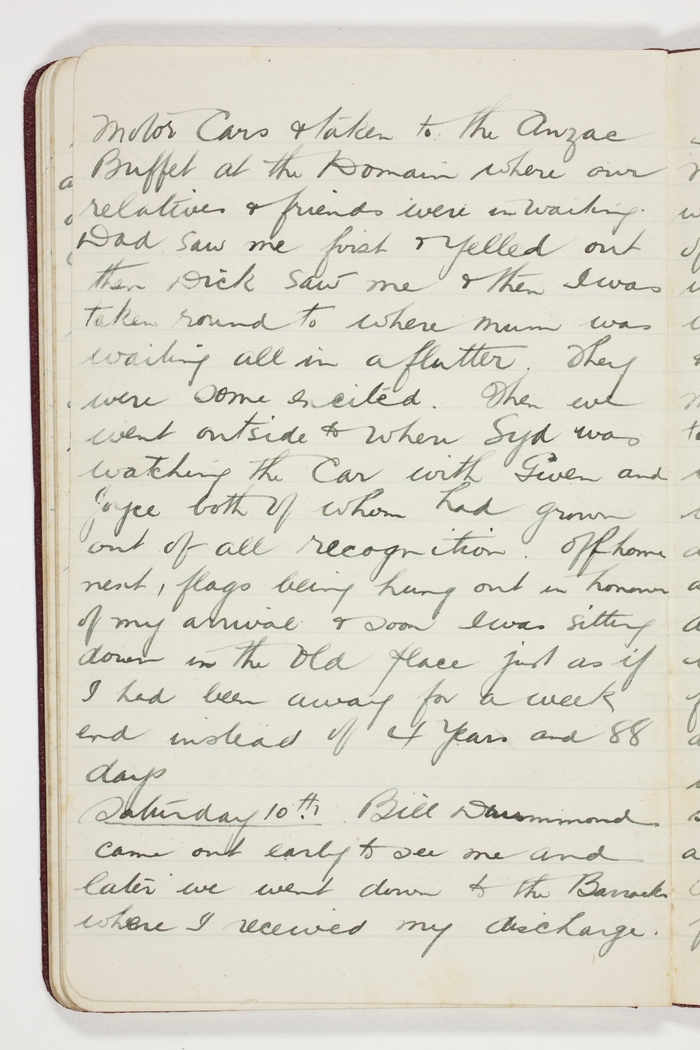 Motor Cars & taken to the Anzac
Buffet at the Domain where our
relatives & friends were in waiting.
Dad saw me first & yelled out
then Dick saw me & then I was
taken round to where mum was
waiting all in a flutter. They
were some excited. Then we
went outside to where Syd was
watching the Car with Gwen and
Joyce both of whom had grown
out of all recognition. Off home
next, flags being hung out in honour
of my arrival & soon I was sitting
down in the Old place just as if
I had been away for a week
end instead of 4 Years and 88
days
Saturday 10th. Bill Drummond
came out early to see me and
later we went down to the Barracks
where I received my discharge.